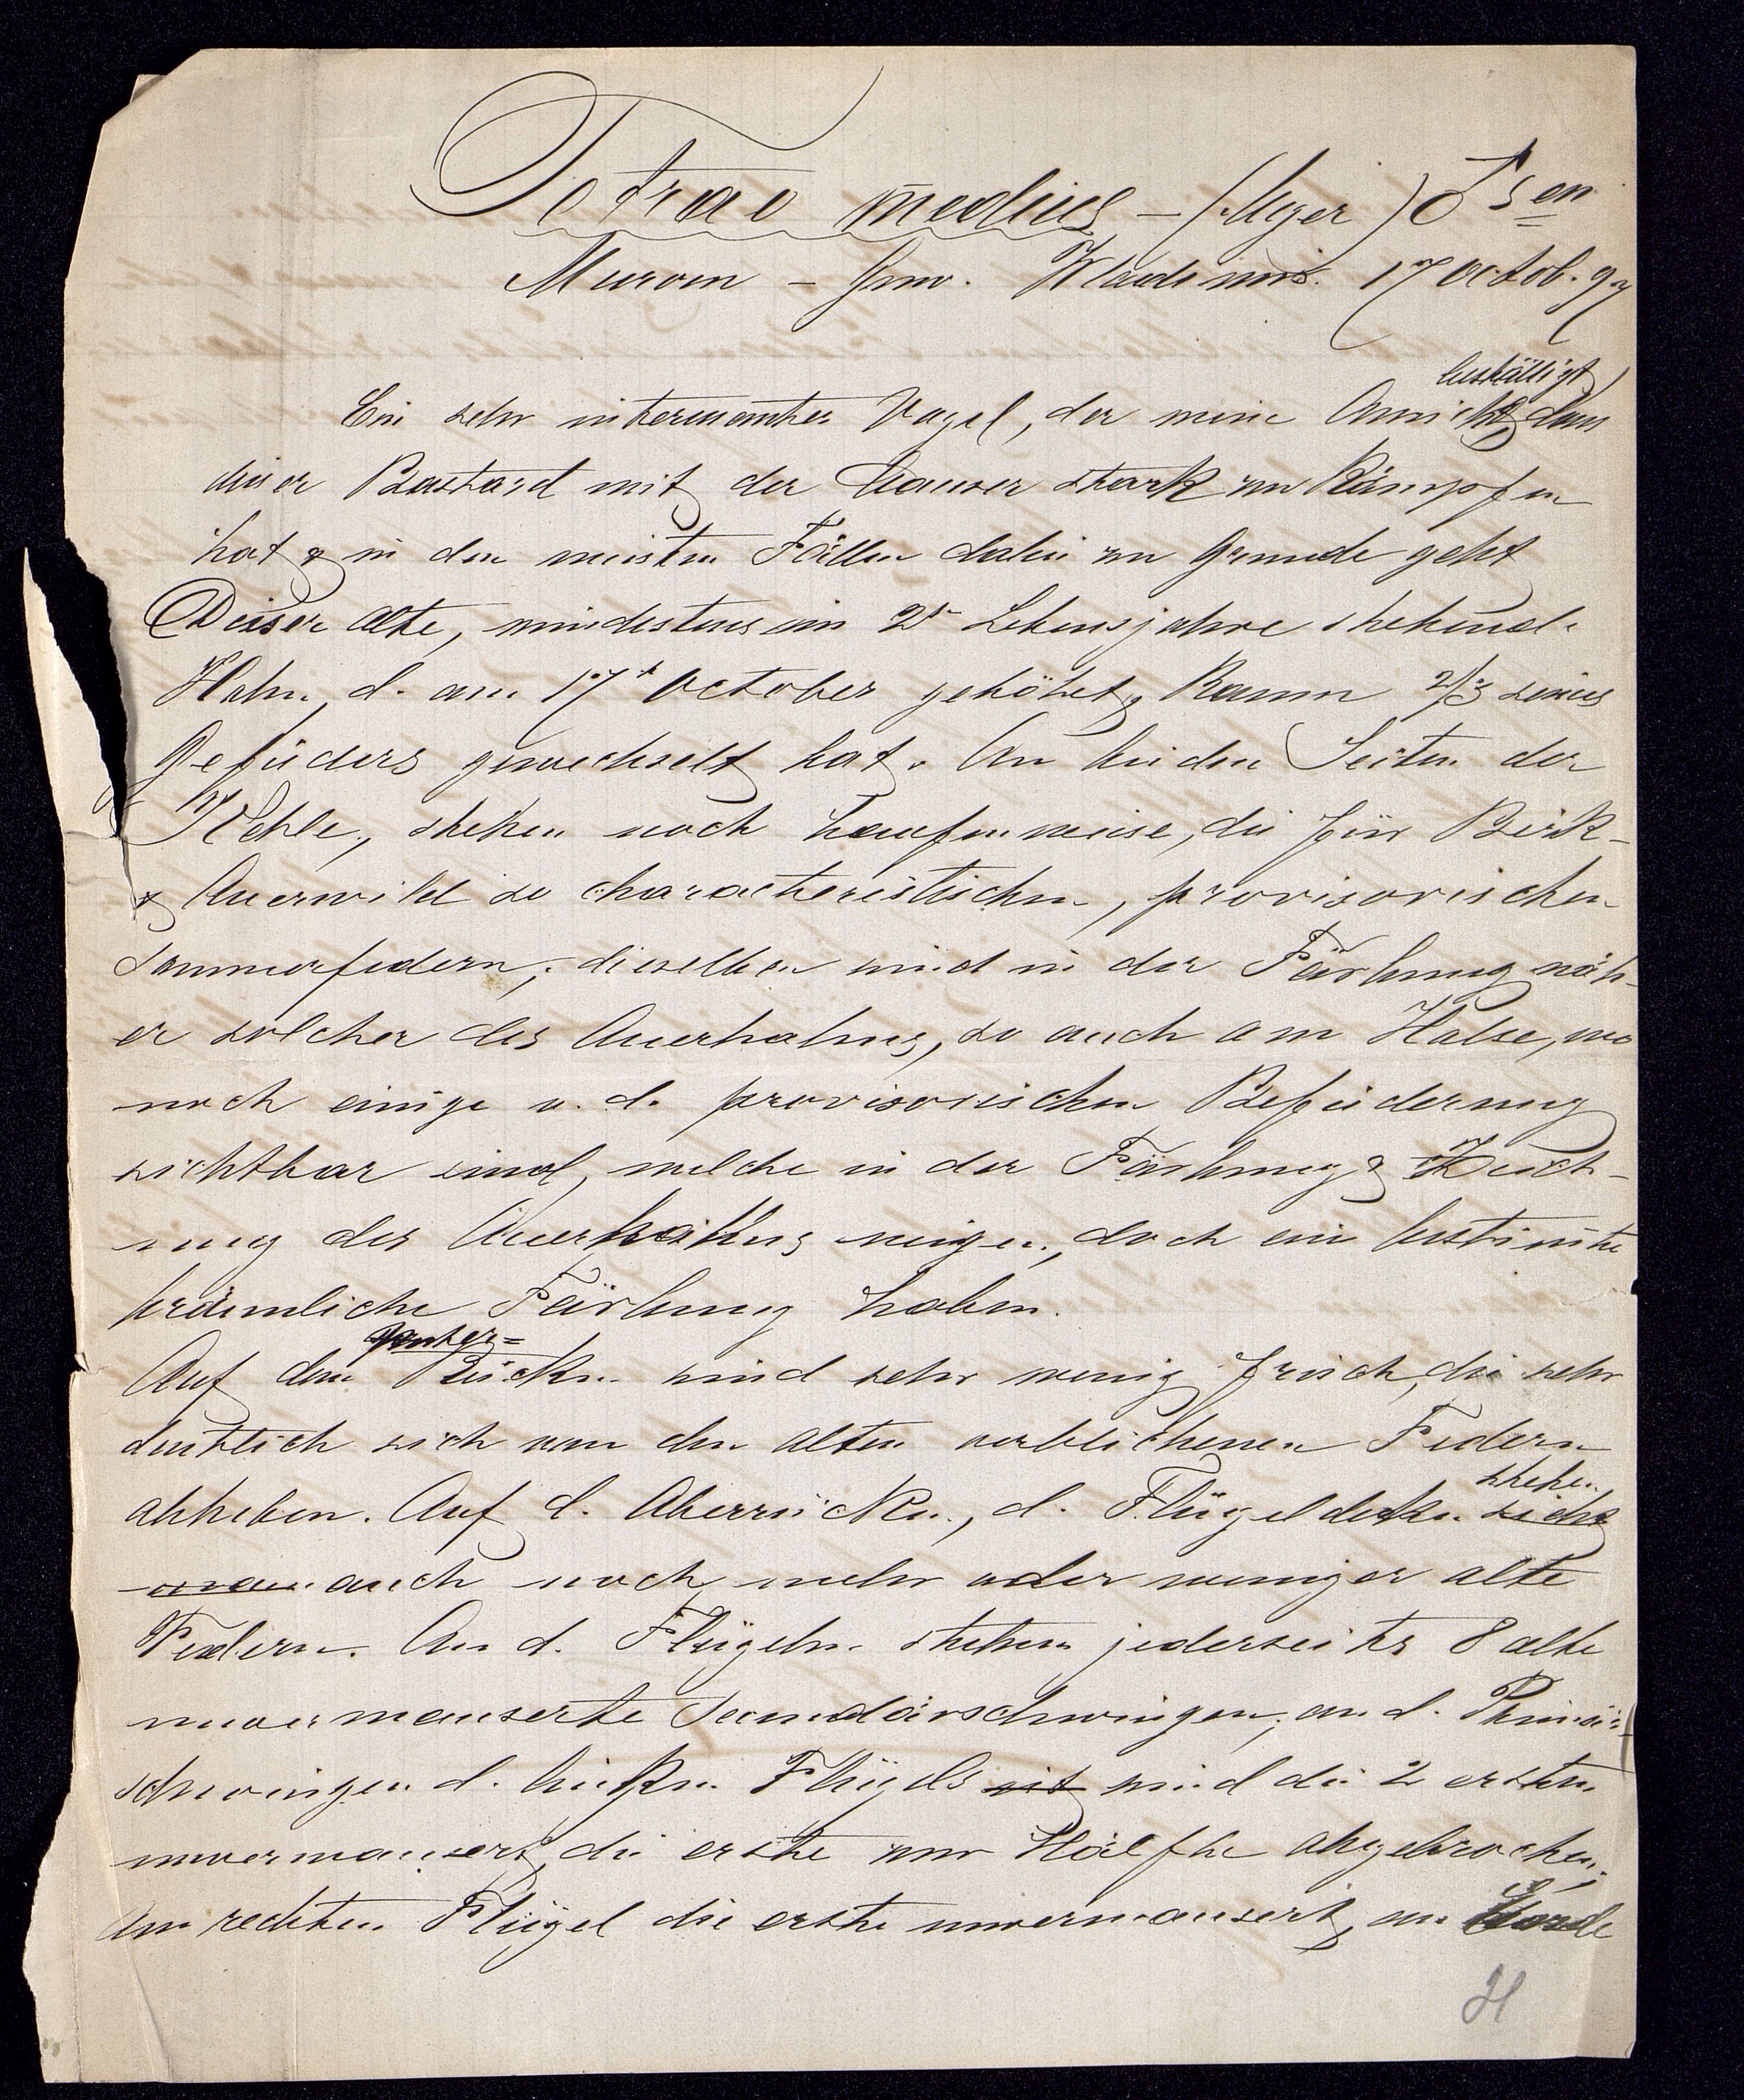 Tetrao medius – (Meyer) ♂ sen
Murom – Gouv. Wladimir. 17 Octob. 97
bestättigt
Ein sehr interessanter Vogel, der meine Ansicht dass
dieser Bastard mit der Mauser stark zu Kämpfen
hat & in den meisten Fällen dabei zu Grunde geht
Dieser alte, mindestens im 2t Lebensjahre stehende
Hahn, d. am 17t October getödtet, kaum 2/3 seines
Gefieders gewechselt hat. An beiden Seiten der
Kehle, stehen noch haufenweise, die für Birk-
& Auerwild so characteristischen, provisorischen
Sommerfedern, dieselben sind in der Färbung näh-
er solcher des Auerhahns, so auch am Halse, wo
noch einige v. d. provisorischen Befiederung
sichtbar sind, welche in der Färbung & Zeich-
nung des Auerhahns neigen, doch eine bestimte
bräunliche Färbung haben.
Auf dem Rücken sind sehr wenig frische, die sehr
deutlich sich von den alten verblichenen Federn
stehen
abheben. Auf d. Oberrücken, d. Flügeldecken sieht
man auch noch mehr oder weniger alte
Federn. An d. Flügeln stehen jederseits 8 alte
unvermauserte Secundärschwingen; an d. Primär-
schwingen d. linken Flügels ist sind die 2 ersten
unvermausert, die erste zur Hälfte abgebrochen;
Am rechten Flügel die erste unvermausert, am